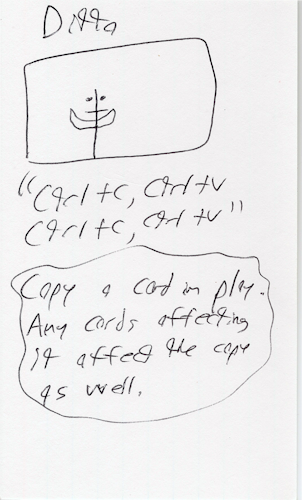 Ditto
"Ctrl+C, Ctrl+V
Ctrl+C, Ctrl+V"
Copy a card in play.
Any cards affecting
it affect the copy
as well.